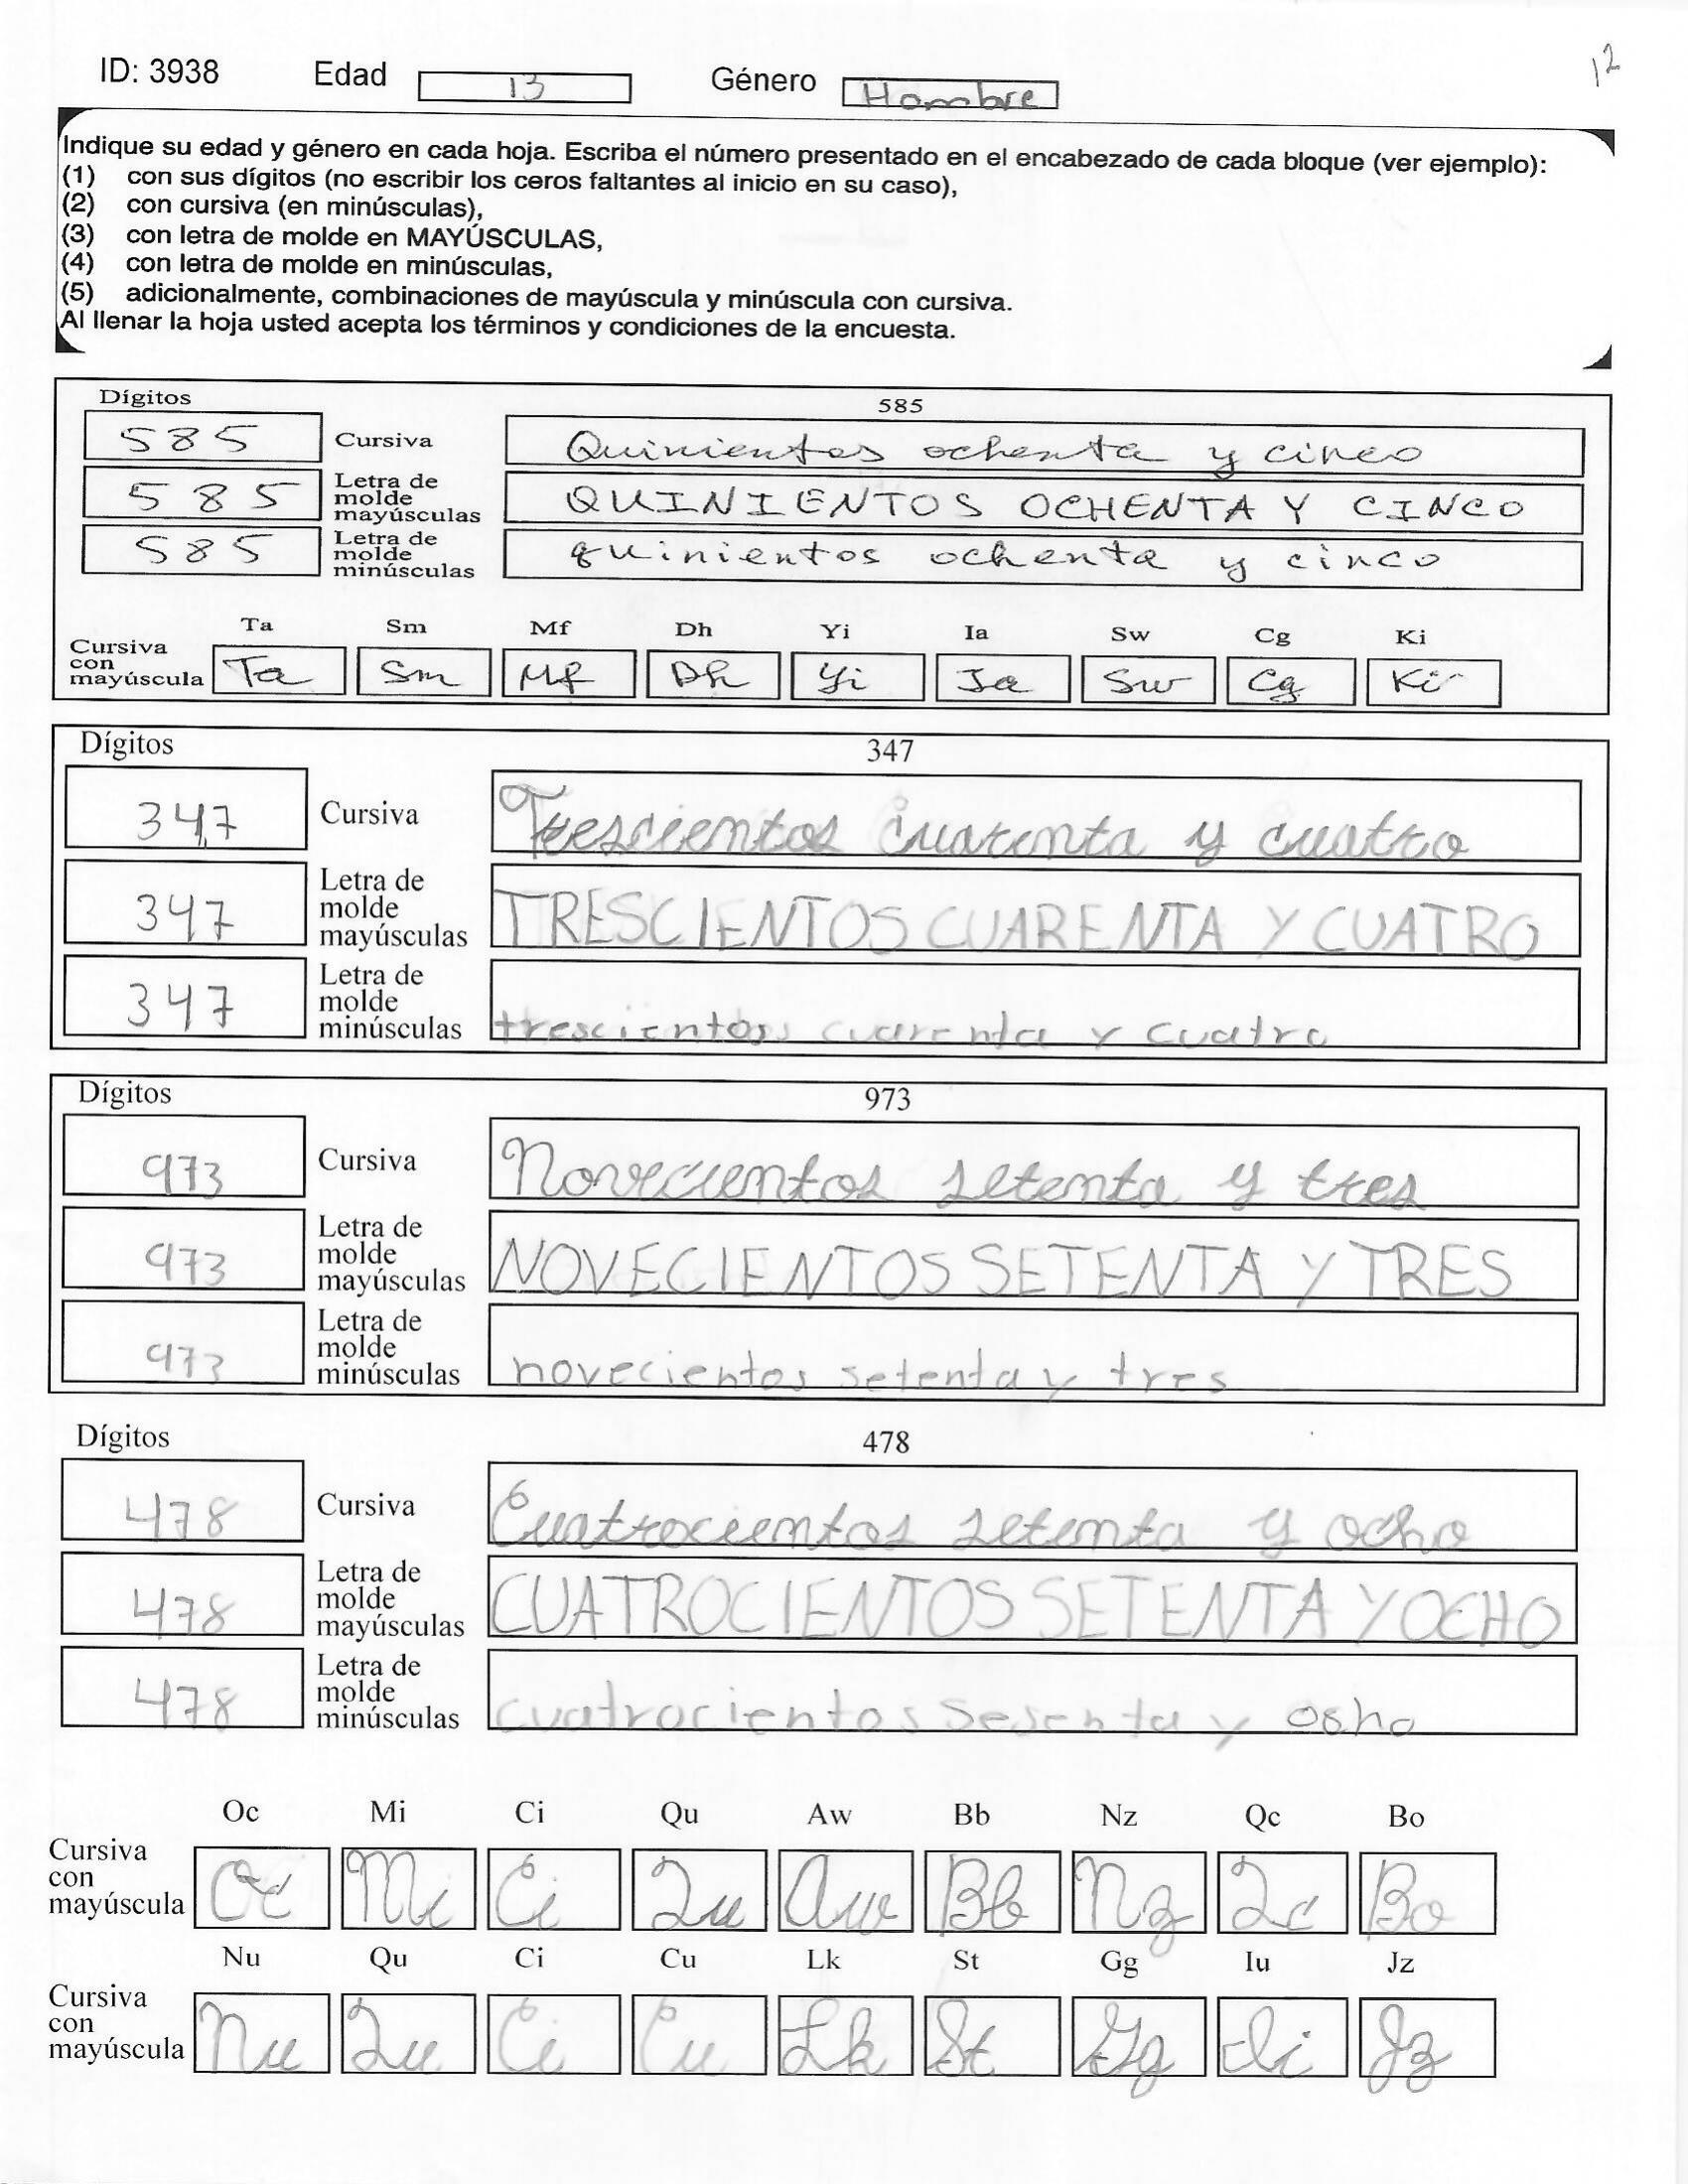 ID: 3938 Edad 13 Género Hombre 12
Indique su edad y género en cada hoja. Escriba el número presentado en el encabezado de cada bloque (ver ejemplo):
(1) con sus dígitos (no escribir los ceros faltantes al inicio en su caso),
(2) con cursiva (en minúsculas),
(3) con letra de molde en MAYÚSCULAS,
(4) con letra de molde en minúsculas,
(5) adicionalmente, combinaciones de mayúscula y minúscula con cursiva.
Al llenar la hoja usted acepta los términos y condiciones de la encuesta.
Dígitos 585
585 Cursiva Quinientos ochenta y cinco
585 Letra de molde mayúsculas QUINIENTOS OCHENTA Y CINCO
585 Letra de molde minúsculas quinientos ochenta y cinco
Ta Sm Mf Dh Yi Ia Sw Cg Ki
Cursiva con mayúscula Ta Sm Mf Dh Yi Ia Sw Cg Ki
Dígitos 347
347 Cursiva Trescientos cuarenta y cuatro
347 Letra de molde mayúsculas TRESCIENTOS CUARENTA Y CUATRO
347 Letra de molde minúsculas trescientos cuarenta y cuatro
Dígitos 973
973 Cursiva Novecientos setenta y tres
973 Letra de molde mayúsculas NOVECIENTOS SETENTA Y TRES
973 Letra de molde minúsculas novecientos setenta y tres
Dígitos 478
478 Cursiva Cuatrocientos setenta y ocho
478 Letra de molde mayúsculas CUATROCIENTOS SETENTA Y OCHO
478 Letra de molde minúsculas cuatrocientos sesenta y osho
Oc Mi Ci Qu Aw Bb Nz Qc Bo
Cursiva con mayúscula Oc Mi Ci Qu Aw Bb Nz Qc Bo
Nu Qu Ci Cu Lk St Gg Iu Jz
Cursiva con mayúscula Nu Qu Ci Cu Lk St Gg Ii Jz